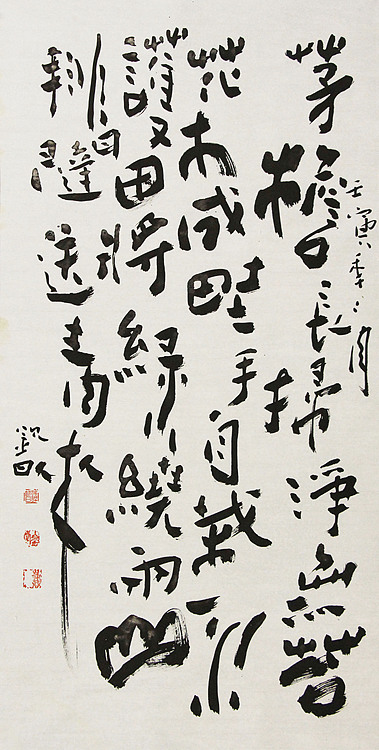 壬寅年二月
茅檐長掃淨無苔
花木成畦手自栽一水
護田將綠繞兩山
排闥送青來